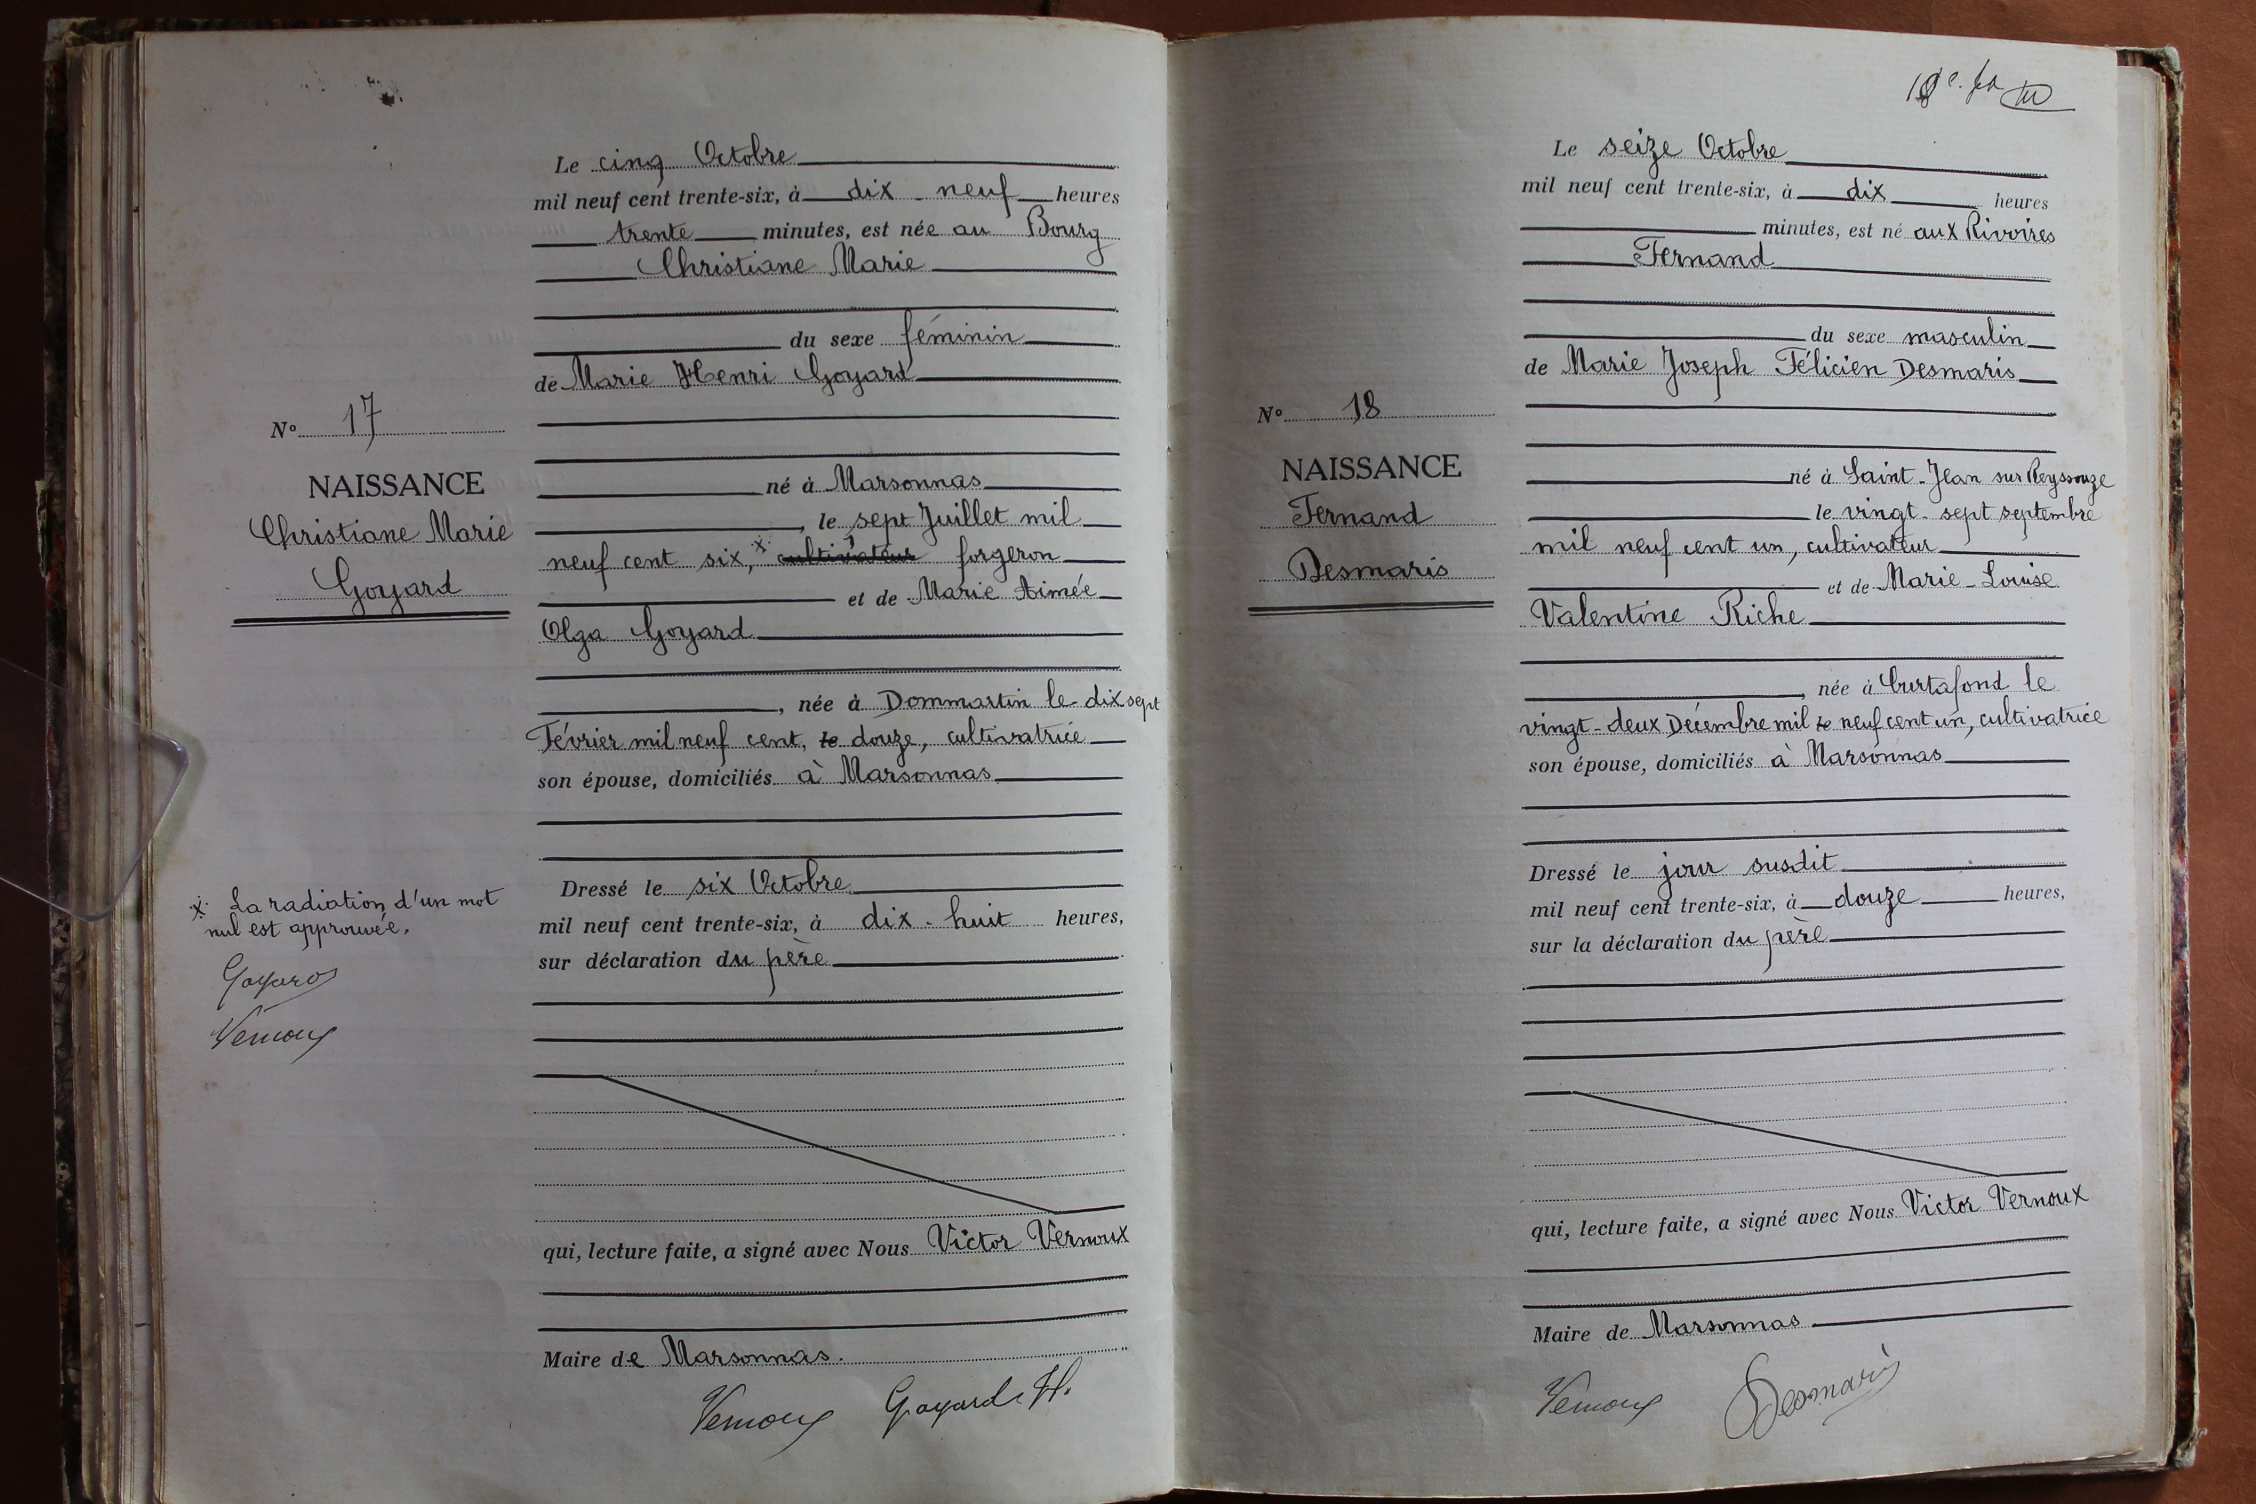 N° 17
NAISSANCE
Christiane Marie
Goyard
x La radiation d'un mot
nul est approuvée.
Goyard
Vernoux
Le cinq Octobre
mil neuf cent trente-six, à dix-neuf heures
trente minutes, est née au Bourg
Christiane Marie
du sexe féminin
de Marie Henri Goyard
né à Marsonnas
, le sept Juillet mil
neuf cent six, x cultivateur forgeron
et de Marie Aimée
Olga Goyard
, née à Dommartin le dix sept
Février mil neuf cent, le douze, cultivatrice
son épouse, domiciliés à Marsonnas
Dressé le six Octobre
mil neuf cent trente-six, à dix-huit heures,
sur déclaration du père
qui, lecture faite, a signé avec Nous Victor Vernoux
Maire de Marsonnas.
Vernoux Goyard H.
N° 18
NAISSANCE
Fernand
Desmaris
Le seize Octobre
mil neuf cent trente-six, à dix heures
minutes, est né aux Rivoires
Fernand
du sexe masculin
de Marie Joseph Félicien Desmaris
né à Saint-Jean sur Reyssouze
le vingt-sept septembre
mil neuf cent un, cultivateur
et de Marie-Louise
Valentine Riche
, née à Curtafond le
vingt-deux Décembre mil le neuf cent un, cultivatrice
son épouse, domiciliés à Marsonnas
Dressé le jour susdit
mil neuf cent trente-six, à douze heures,
sur la déclaration du père
qui, lecture faite, a signé avec Nous Victor Vernoux
Maire de Marsonnas
Vernoux Desmaris